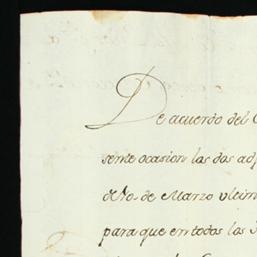 De acuerdo del
sente ocasion las dos
de Marzo ultim
para que en todos los